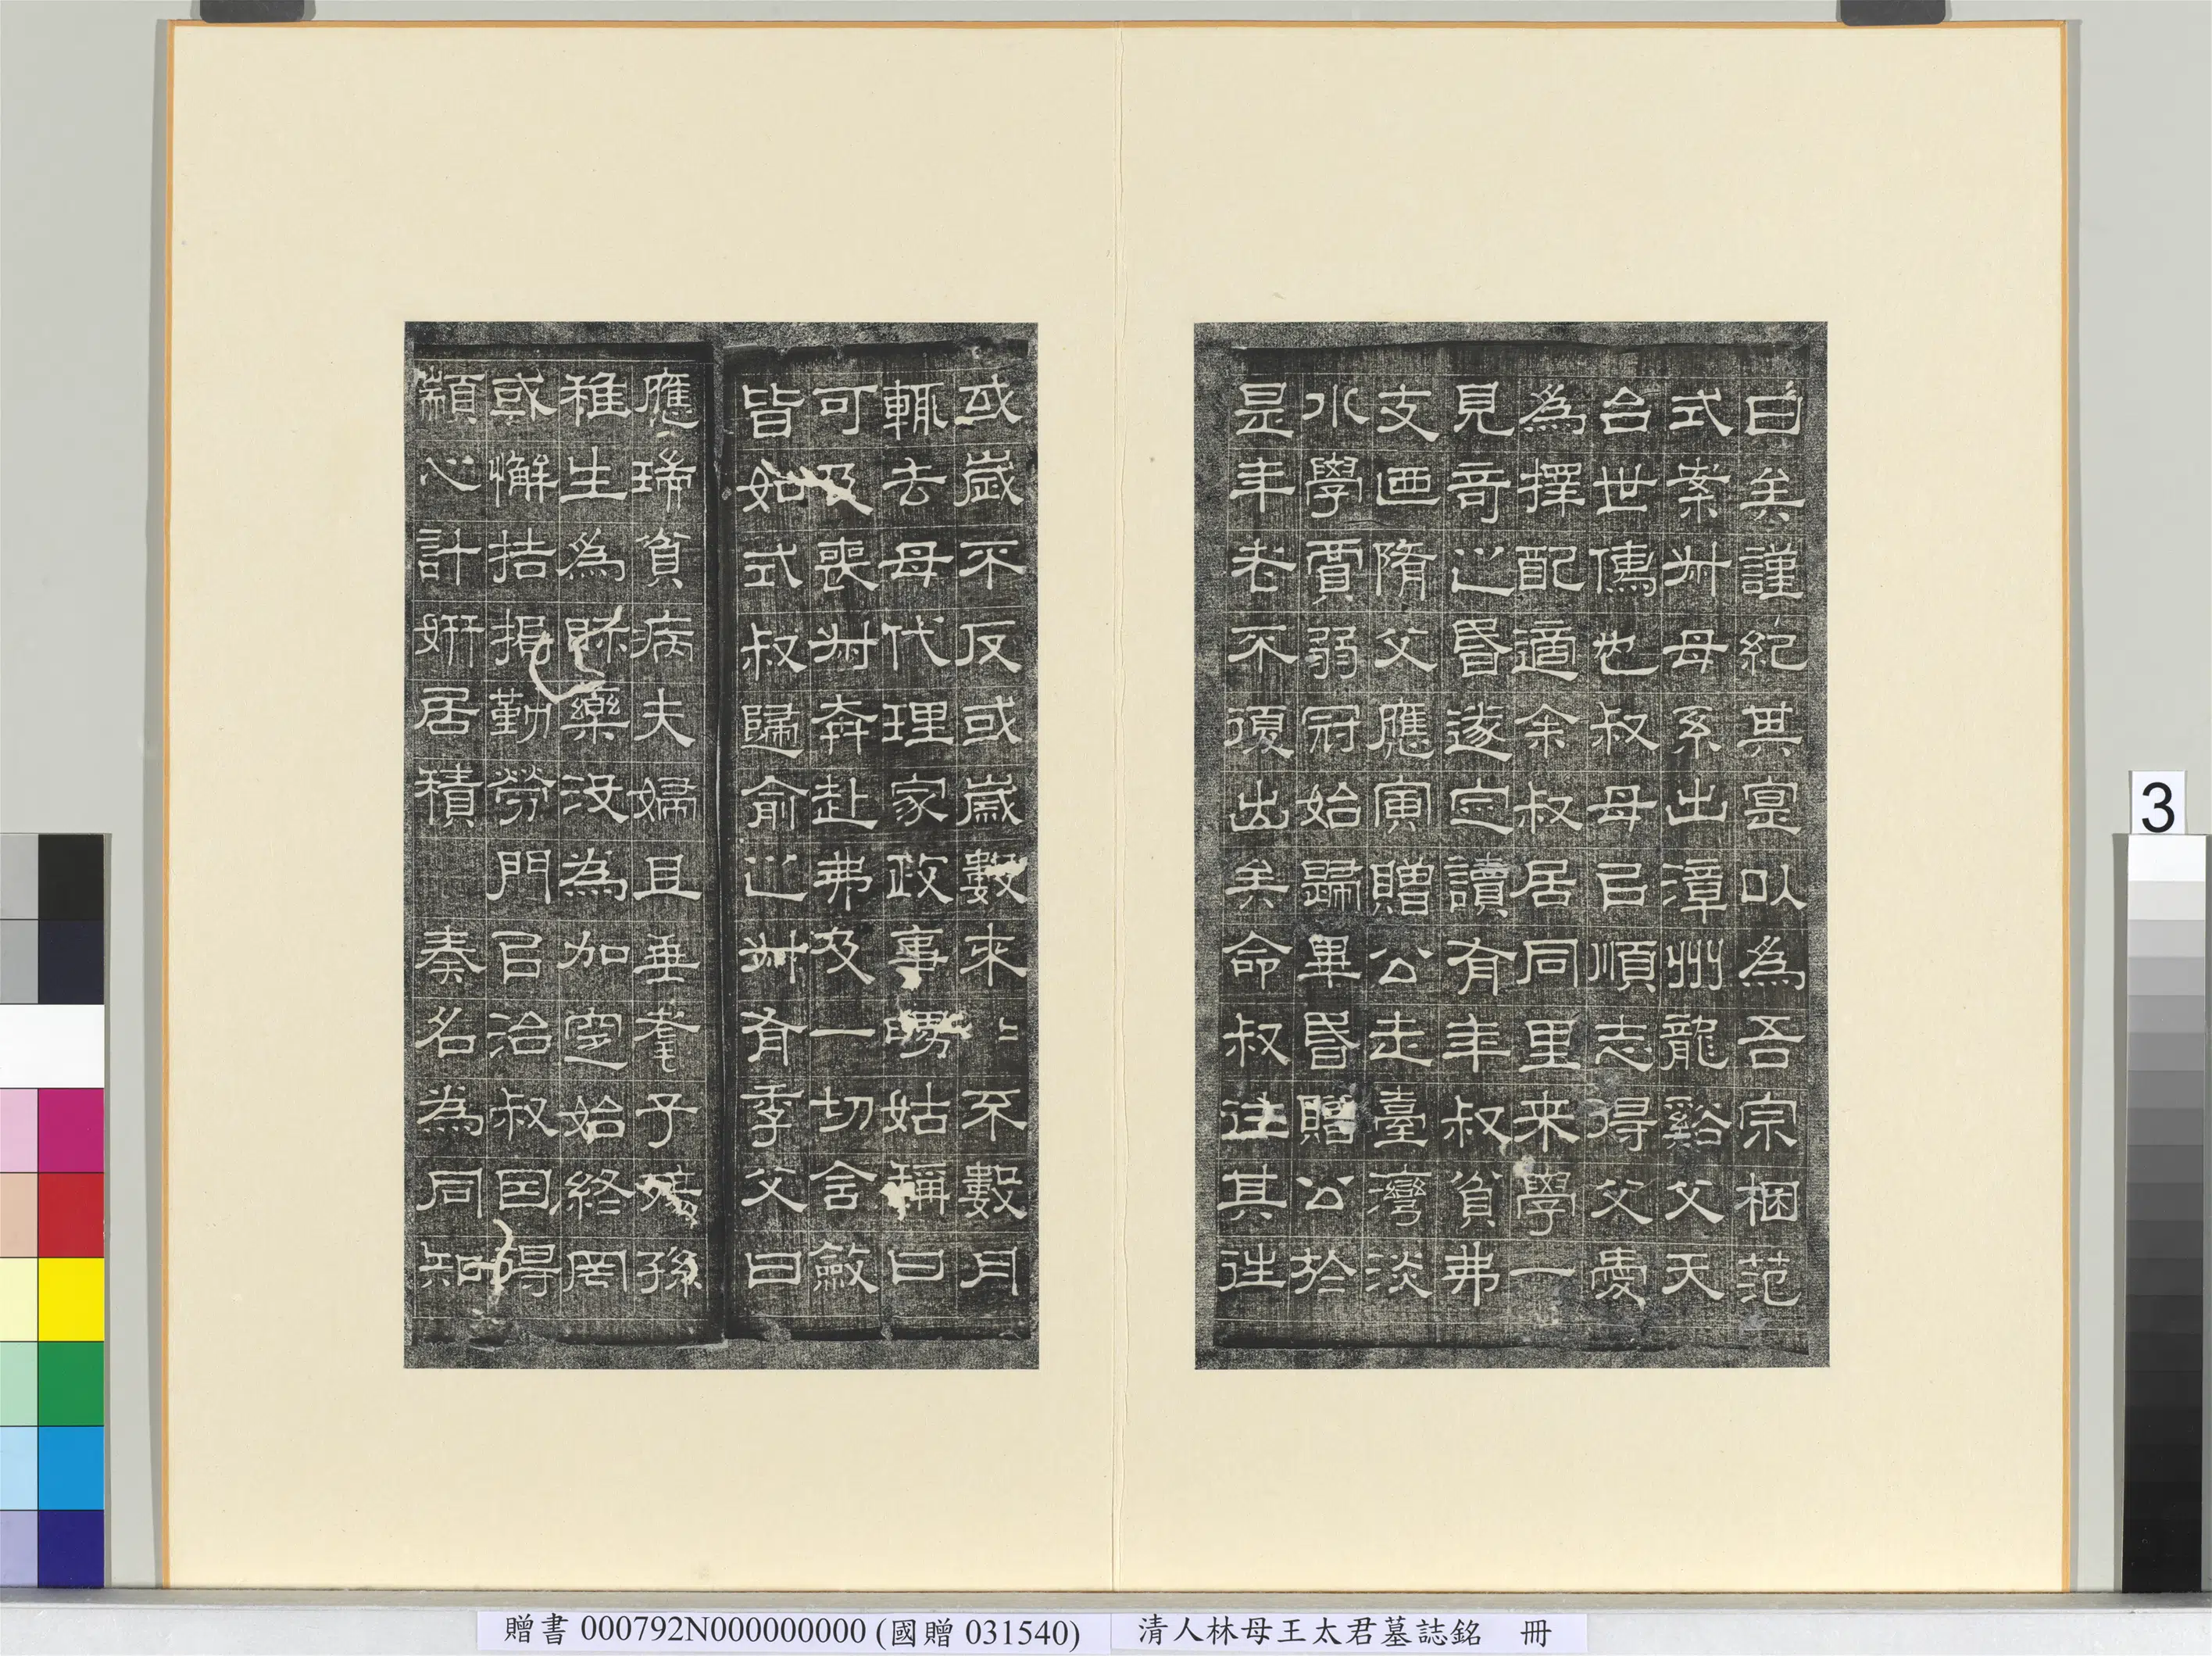 白矣謹紀其寔以為吾宗梱范
式案叔母系出漳州龍谿父天
合世儁也叔母官順志得父憂
為擇配適余叔居同里来學一
見奇之昏遂定讀有年叔貧弗
支廼隋父應寅贈公走臺灣淡
水學賈弱冠始歸畢昏贈公於
是年老不復出矣命叔往其往
或歲不反或歲數來數不數月
輒去母代理家政事嫠姑稱曰
可及喪叔奔赴弗及一切含斂
皆如式叔歸俞之叔有季父曰
應瑞貧病夫婦且垂耄子殤孫
稚生為賻藥沒為加窆始終罔
或懈拮据勤勞門官治叔因得
顓心計妍居積秦名為同知
3
贈書 000792N000000000 (國贈 031540)
清人林母王太君墓誌銘 冊